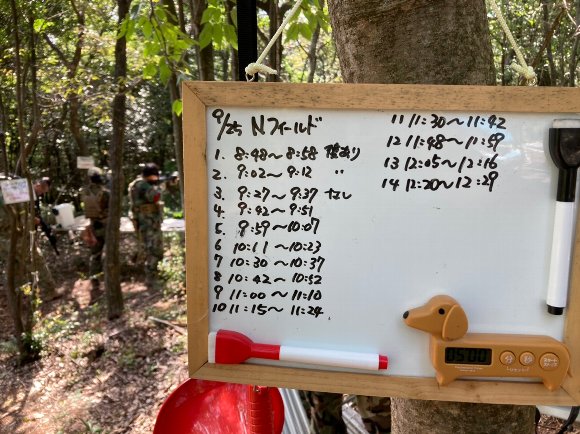 9/25 Nフィールド
1. 8:48～8:58 陰あり
2. 9:02～9:12 〃
3. 9:27～9:37 なし
4. 9:42～9:51
5. 9:59～10:07
6 10:11～10:23
7 10:30～10:37
8 10:42～10:52
9 11:00～11:10
10 11:15～11:24
11 11:30～11:42
12 11:48～11:59
13 12:05～12:16
14 12:20～12:29
05:00
分
秒
スタート
ストップ